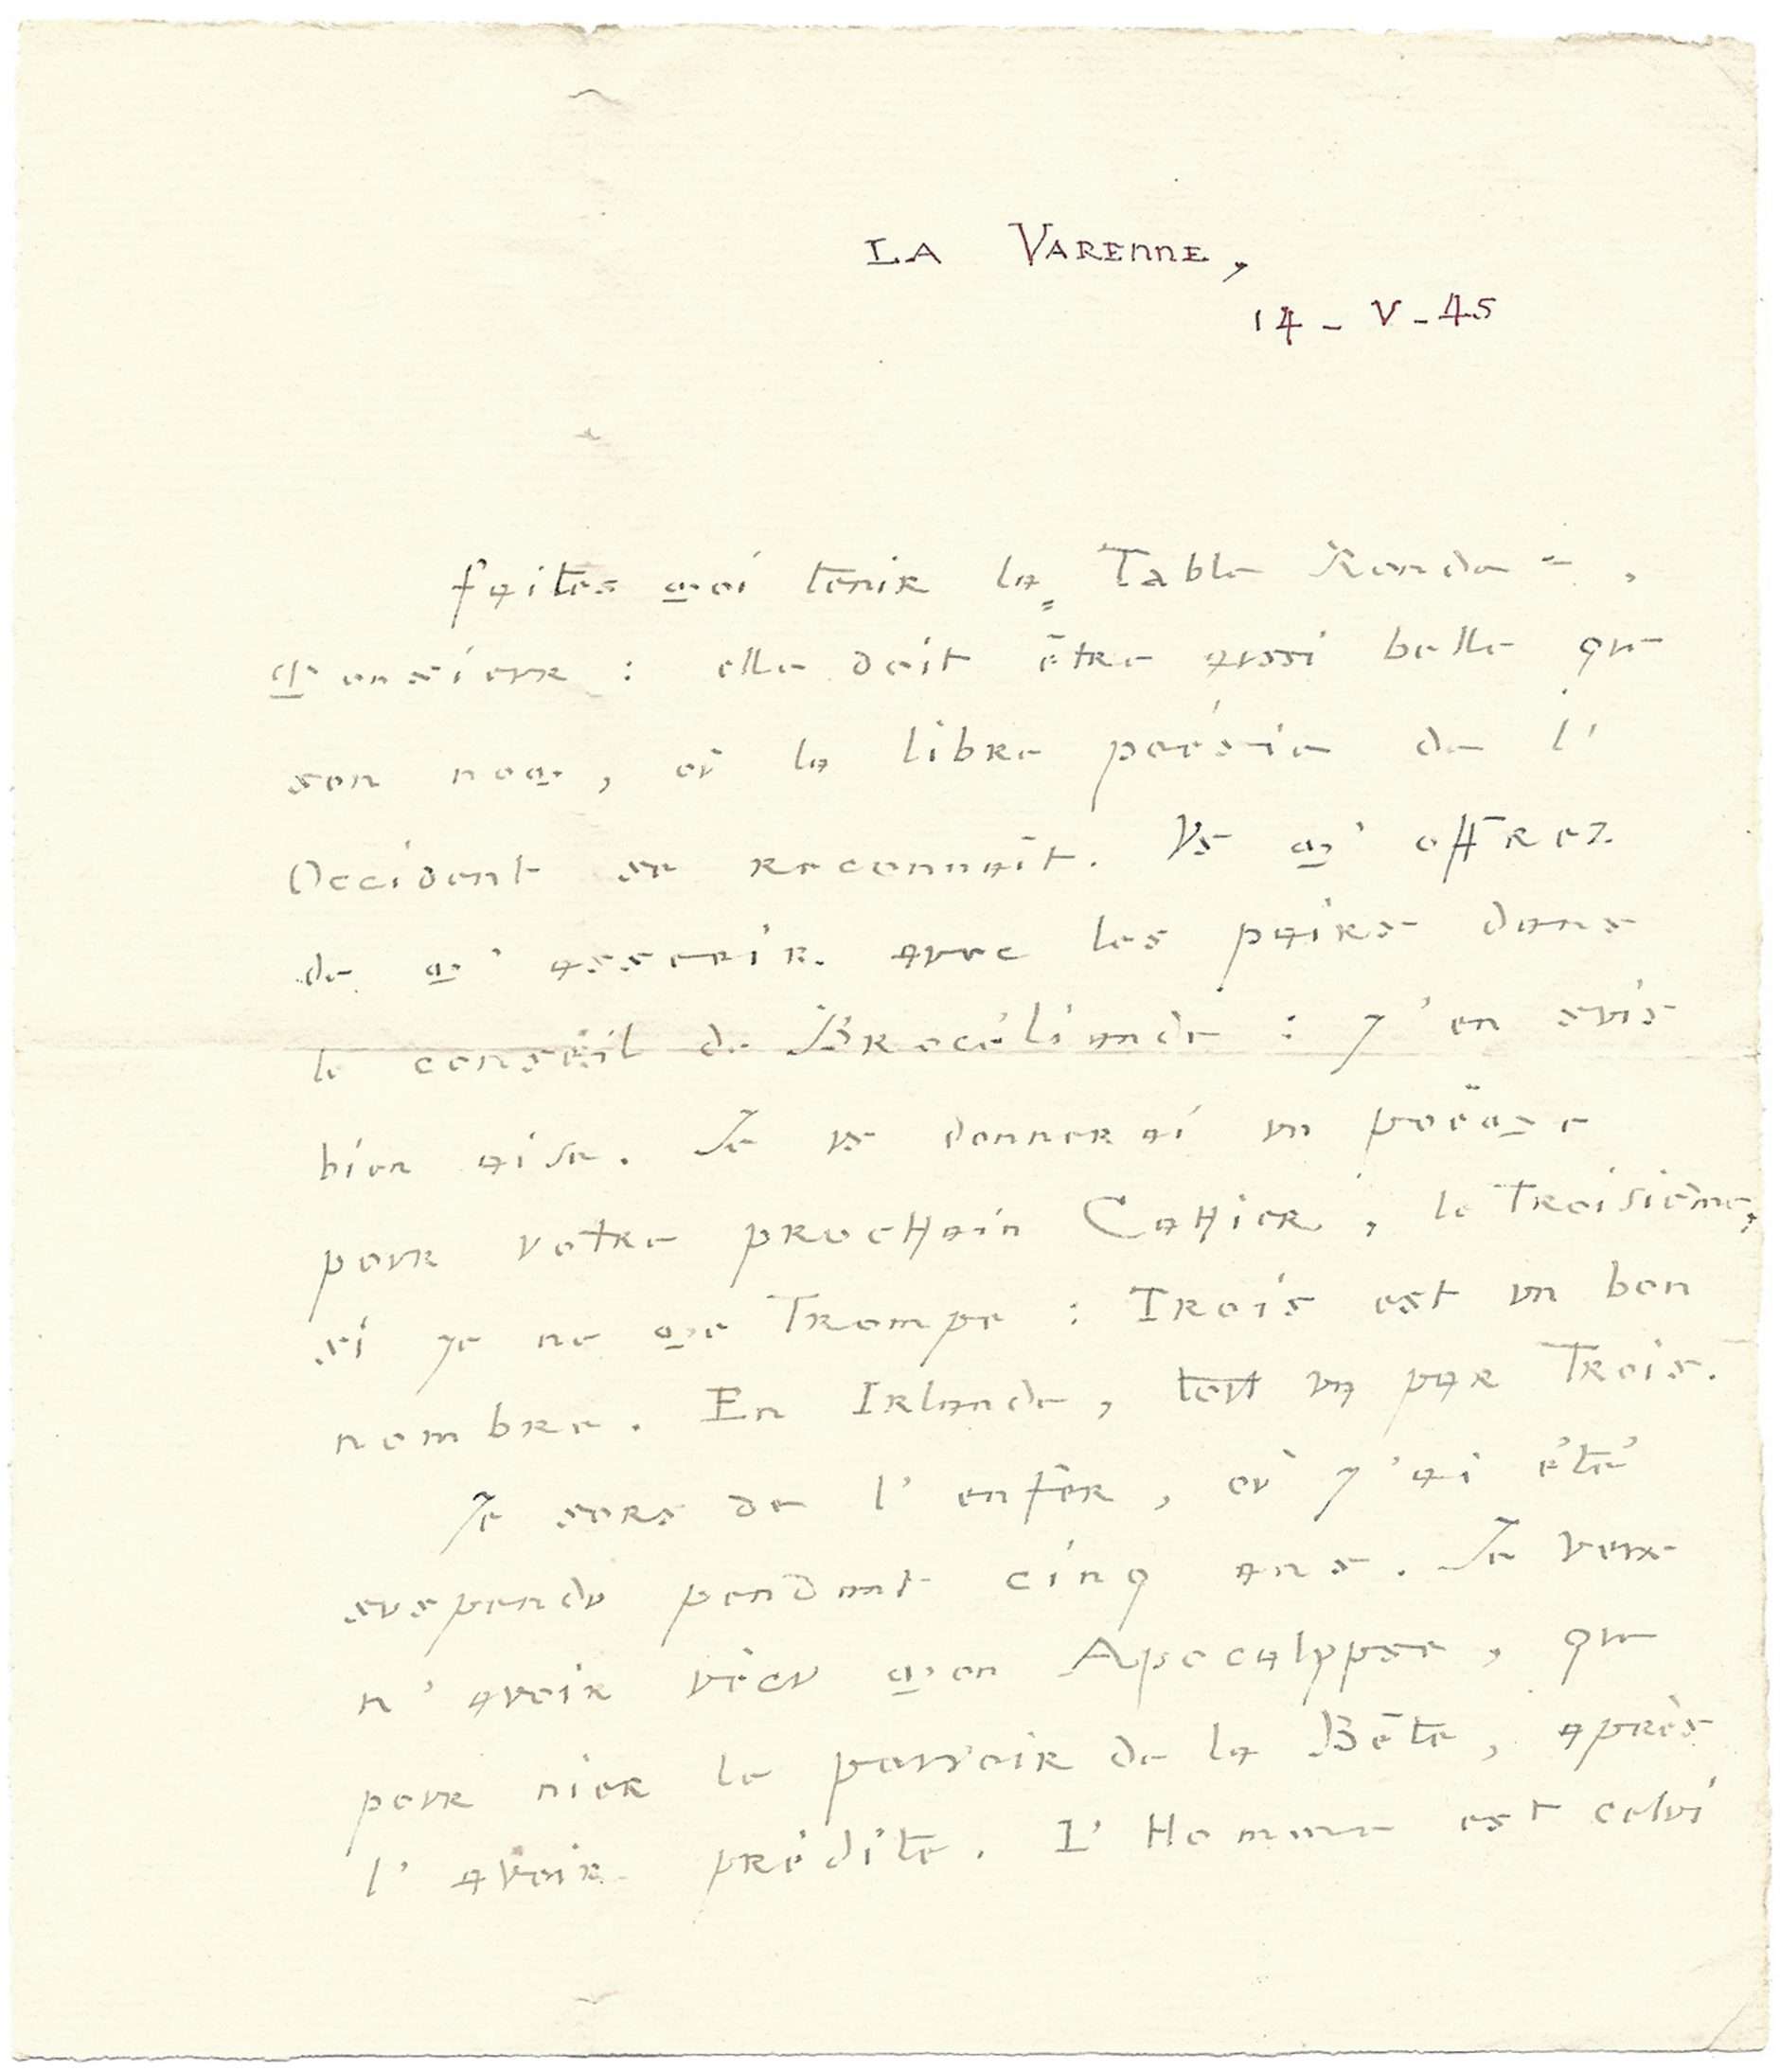 LA VARENNE,
14 - V - 45
faites moi tenir la "Table Ronde",
Monsieur : elle doit être aussi belle que
son nom, où la libre poésie de l'
Occident se reconnaît. Vs m'offrez
de m'asseoir avec les pairs dans
le conseil de Brocéliande : j'en suis
bien aise. Je vs donnerai un poëme
pour votre prochain Cahier, le troisième,
si je ne me trompe : Trois est un bon
nombre. En Irlande, tout va par Trois.
Je sors de l'enfer, où j'ai été
suspendu pendant cinq ans. Je veux
n'avoir vécu mon Apocalypse, que
pour nier le pouvoir de la Bête, après
l'avoir prédite. L'Homme est celui